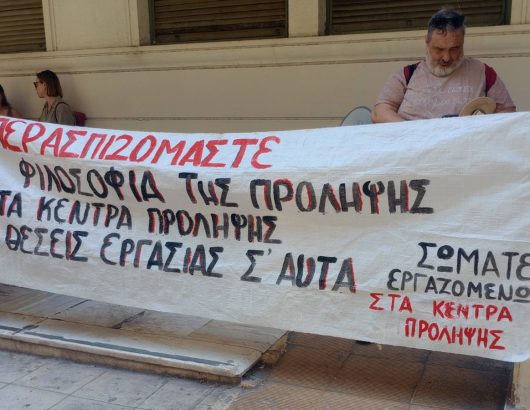 ΠΕΡΑΣΠΙΖΟΜΑΣΤΕ
ΦΙΛΟΣΟΦΙΑ ΤΗΣ ΠΡΟΛΗΨΗΣ
ΤΑ ΚΕΝΤΡΑ ΠΡΟΛΗΨΗΣ
ΘΕΣΕΙΣ ΕΡΓΑΣΙΑΣ Σ' ΑΥΤΑ
ΣΩΜΑΤΕ
ΕΡΓΑΖΟΜΕΝΩ
ΣΤΑ ΚΕΝΤΡΑ
ΠΡΟΛΗΨΗΣ